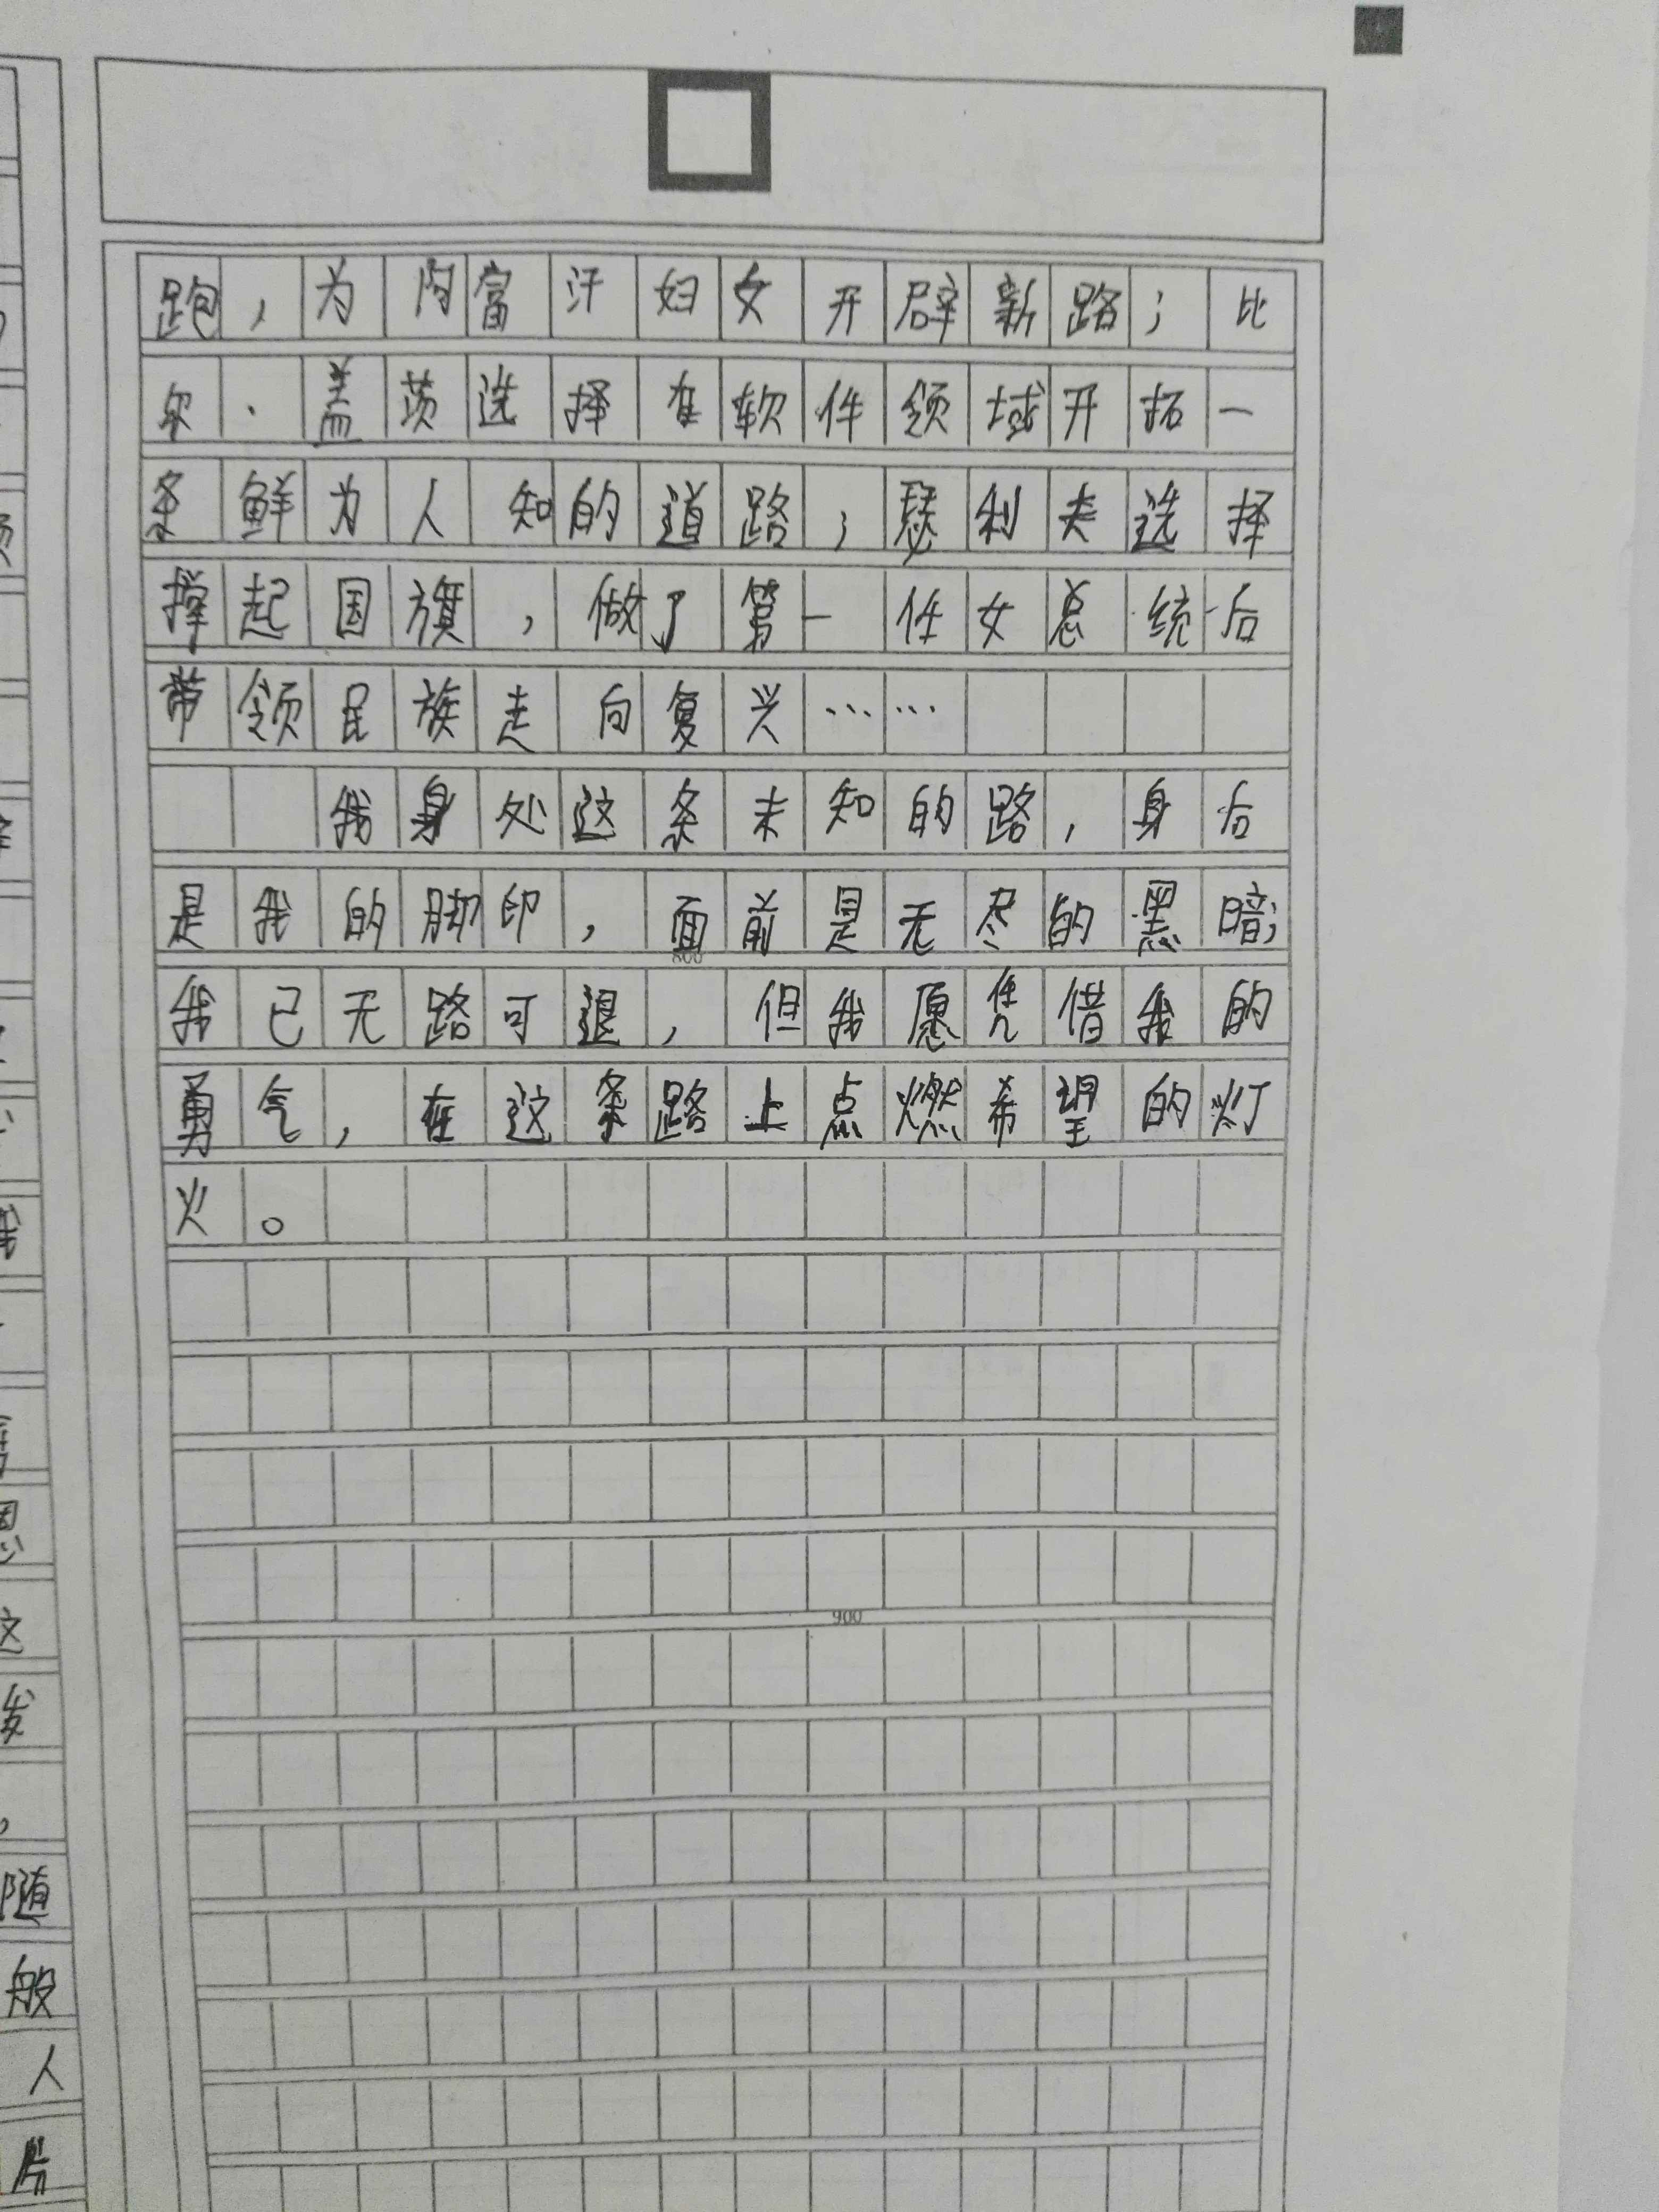 跑，为阿富汗妇女开辟新路；比
尔·盖茨选择在软件领域开拓一
条鲜为人知的道路；瑟利夫选择
撑起国旗，做了第一任女总统后
带领民族走向复兴……
我身处这条未知的路，身后
是我的脚印，面前是无尽的黑暗；
800
我已无路可退，但我愿凭借我的
勇气，在这条路上点燃希望的灯
火。
900
我
恩
这
发
，
随
般
人
片